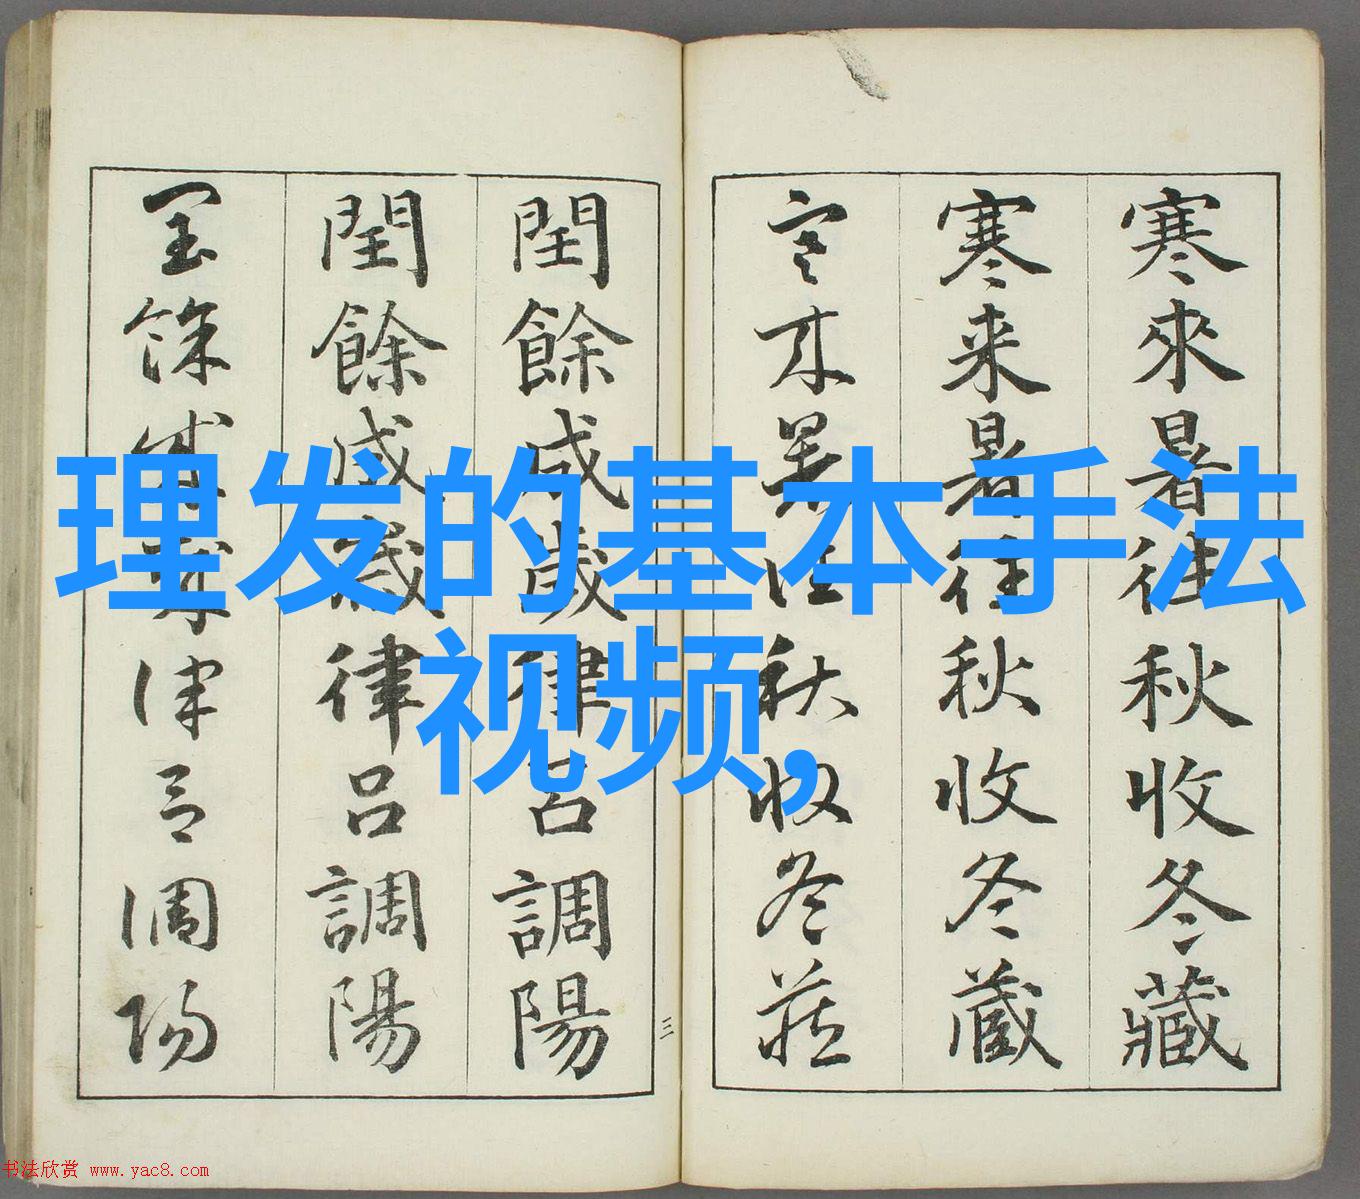 理发的基本手法
视频,
寒來暑往秋收冬藏
寒来暑往秋收冬蔵
寒来暑往秋收冬藏
三
閏餘成歲律呂調陽
閏餘成歲律呂調陽
閏餘成歲律呂調陽
书法欣赏 www.yac8.com